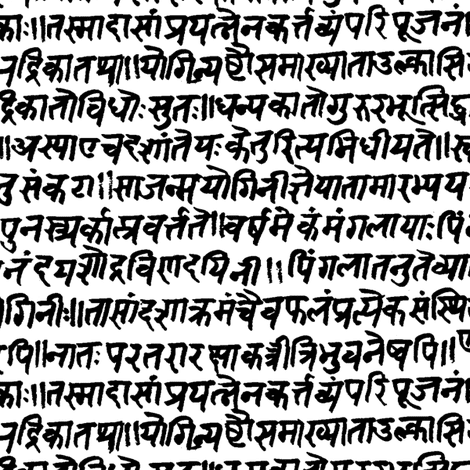 काः॥तस्मादासांप्रयत्नेनकर्त्तव्यंपरिपूजनं
न्द्रिकातथा॥योगिन्यष्टौसमाख्याताउल्कासि
द्रिकातोविधोःसुतः॥धन्यकातोगुरुरभूत्सिद्ध
॥अस्याएवदशांतेयःकेतुरित्यभिधीयते॥
तुसंकटा॥साजन्मयोगिनीज्ञेयातामारभ्यय
पुनरव्यर्कात्प्रवर्त्तते॥वर्षमेकंमंगलायाःपिं
नंदयशौद्रविणदायिनी॥पिंगलातनुतेव्या
गिनीः॥तासांदशाक्रमंचैवफलंप्रत्येकसंस्थि
पि॥नातःपरतरारसाकाचीत्रिभुवनेष्वपि॥
काः॥तस्मादासांप्रयत्नेनकर्त्तव्यंपरिपूजनं
न्द्रिकातथा॥योगिन्यष्टौसमाख्याताउल्कासि